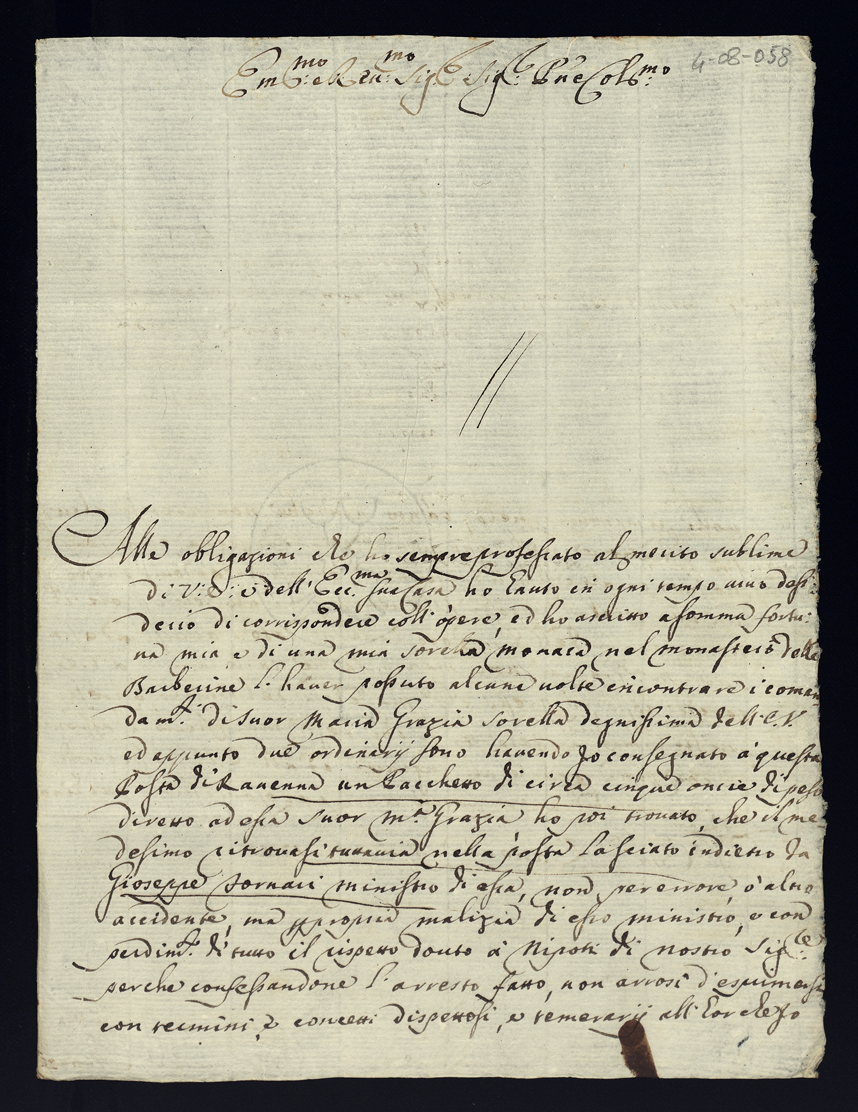 4-08-058
Em:mo e Reu:mo Sig:r Sig:r P̄ne Col:mo
Alle obligazioni che ho sempre professato al merito sublime
di V: E: e dell' Ecc:ma sua Casa ho hauto in ogni tempo uiuo desi-
derio di corrispondere coll' opere, ed ho ascritto a somma fortu-
na mia, e di una mia sorella monaca nel monasterò delle
Barberine l' hauer possuto alcune uolte incontrare i coman
dam:ti di Suor Maria Grazia sorella degnissima dell' E.V.
ed appunto due ordinarij sono hauendo Jo consegnato à questa
Posta di Rauenna un Pacchetto di circa cinque oncie di peso
diretto ad essa Suor M:a Grazia ho poi trouato, che il me
desimo ritrouasi tuttauia nella posta lasciato indietro da
Gioseppe Fornari ministro di essa, non per errore, ò altro
accidente, ma propria malizia di esso ministro, e con
perdim:to di tutto il rispetto douto à Nipoti di nostro Sig:re
perche confessandone l' arresto fatto, non arrosì d' esprimersi
con termini, e concetti dispettosi, e temerarij all' hor che Jo